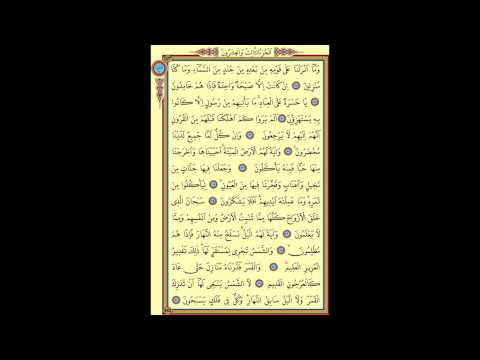 اَلْجُزْءُ الثَّالِثُ وَالْعِشْرُونَ
وَمَٓا اَنْزَلْنَا عَلٰى قَوْمِهٖ مِنْ بَعْدِهٖ مِنْ جُنْدٍ مِنَ السَّمَٓاءِ وَمَا كُنَّا
مُنْزِلٖينَ ۞ اِنْ كَانَتْ اِلَّا صَيْحَةً وَاحِدَةً فَاِذَا هُمْ خَامِدُونَ
۞ يَا حَسْرَةً عَلَى الْعِبَادِ مَا يَأْتٖيهِمْ مِنْ رَسُولٍ اِلَّا كَانُوا
بِهٖ يَسْتَهْزِؤُنَ ۞ اَلَمْ يَرَوْا كَمْ اَهْلَكْنَا قَبْلَهُمْ مِنَ الْقُرُونِ
اَنَّهُمْ اِلَيْهِمْ لَا يَرْجِعُونَ ۞ وَاِنْ كُلٌّ لَمَّا جَمٖيعٌ لَدَيْنَا
مُحْضَرُونَ ۞ وَاٰيَةٌ لَهُمُ الْاَرْضُ الْمَيْتَةُ اَحْيَيْنَاهَا وَاَخْرَجْنَا
مِنْهَا حَبًّا فَمِنْهُ يَأْكُلُونَ ۞ وَجَعَلْنَا فٖيهَا جَنَّاتٍ مِنْ
نَخٖيلٍ وَاَعْنَابٍ وَفَجَّرْنَا فٖيهَا مِنَ الْعُيُونِ ۞ لِيَأْكُلُوا مِنْ
ثَمَرِهٖ وَمَا عَمِلَتْهُ اَيْدٖيهِمْ اَفَلَا يَشْكُرُونَ ۞ سُبْحَانَ الَّذٖى
خَلَقَ الْاَزْوَاجَ كُلَّهَا مِمَّا تُنْبِتُ الْاَرْضُ وَمِنْ اَنْفُسِهِمْ وَمِمَّا
لَا يَعْلَمُونَ ۞ وَاٰيَةٌ لَهُمُ الَّيْلُ نَسْلَخُ مِنْهُ النَّهَارَ فَاِذَا هُمْ
مُظْلِمُونَ ۞ وَالشَّمْسُ تَجْرٖى لِمُسْتَقَرٍّ لَهَا ذٰلِكَ تَقْدٖيرُ
الْعَزٖيزِ الْعَلٖيمِ ۞ وَالْقَمَرَ قَدَّرْنَاهُ مَنَازِلَ حَتّٰى عَادَ
كَالْعُرْجُونِ الْقَدٖيمِ ۞ لَا الشَّمْسُ يَنْبَغٖى لَهَٓا اَنْ تُدْرِكَ
الْقَمَرَ وَلَا الَّيْلُ سَابِقُ النَّهَارِ وَكُلٌّ فٖى فَلَكٍ يَسْبَحُونَ ۞